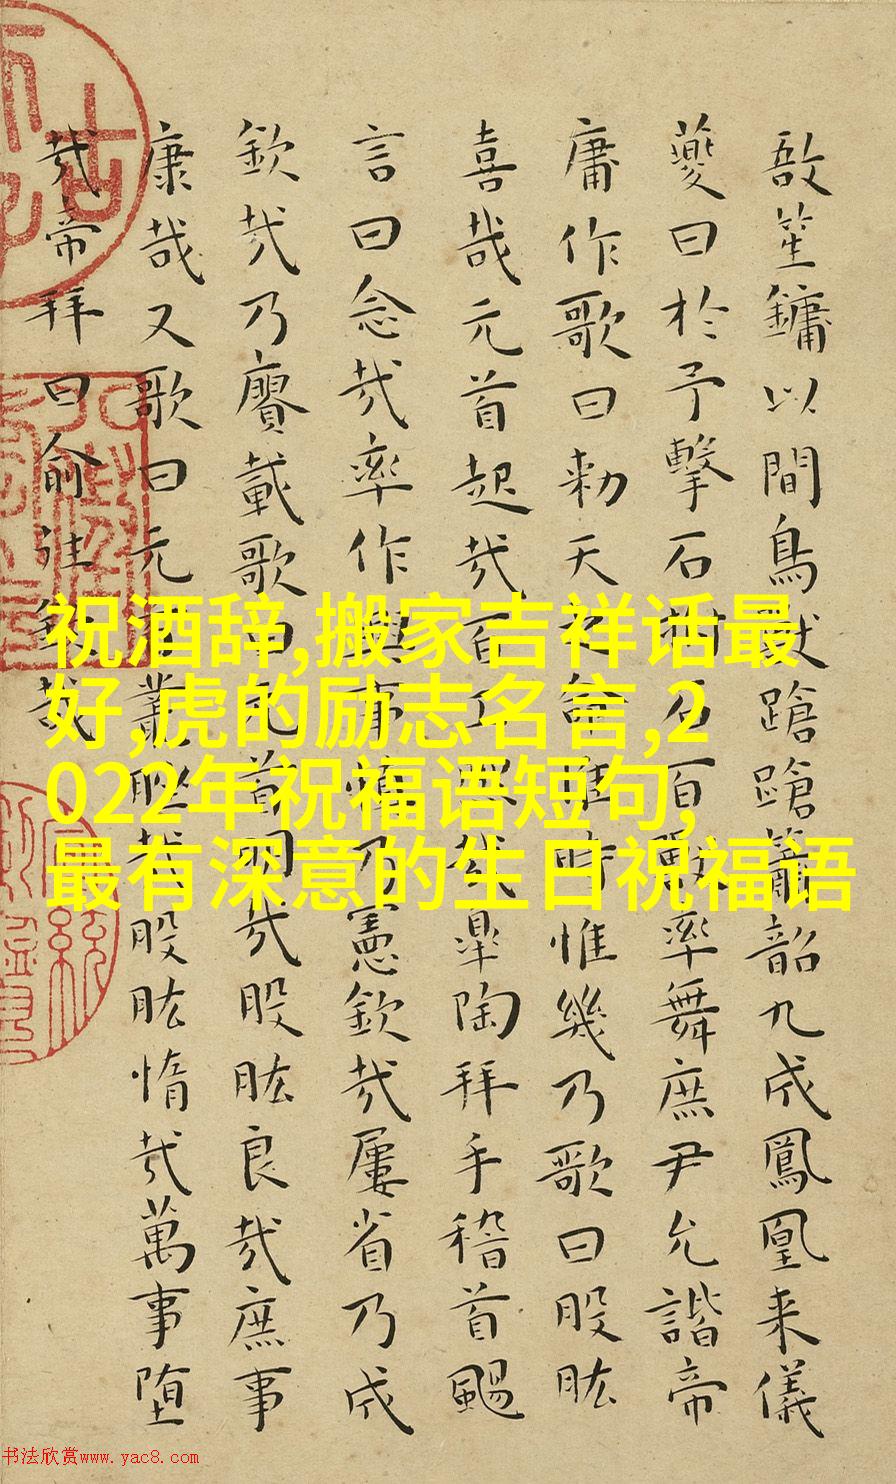 敔笙鏞以間鳥獸蹌蹌簫韶九成鳳凰来儀
夔曰於予擊石拊石百獸率舞庶尹允諧帝
庸作歌曰勑天之命惟時惟幾乃歌曰股肱
喜哉元首起哉百工熙哉皋陶拜手稽首颺
言曰念哉率作興事慎乃憲欽哉屢省乃成
欽哉乃賡載歌曰元首明哉股肱良哉庶事
康哉又歌曰元首叢脞哉股肱惰哉萬事堕
哉帝拜曰俞往欽哉
祝酒辞,搬家吉祥话最
好,虎的励志名言,2
022年祝福语短句,
最有深意的生日祝福语
书法欣赏www.yac8.com